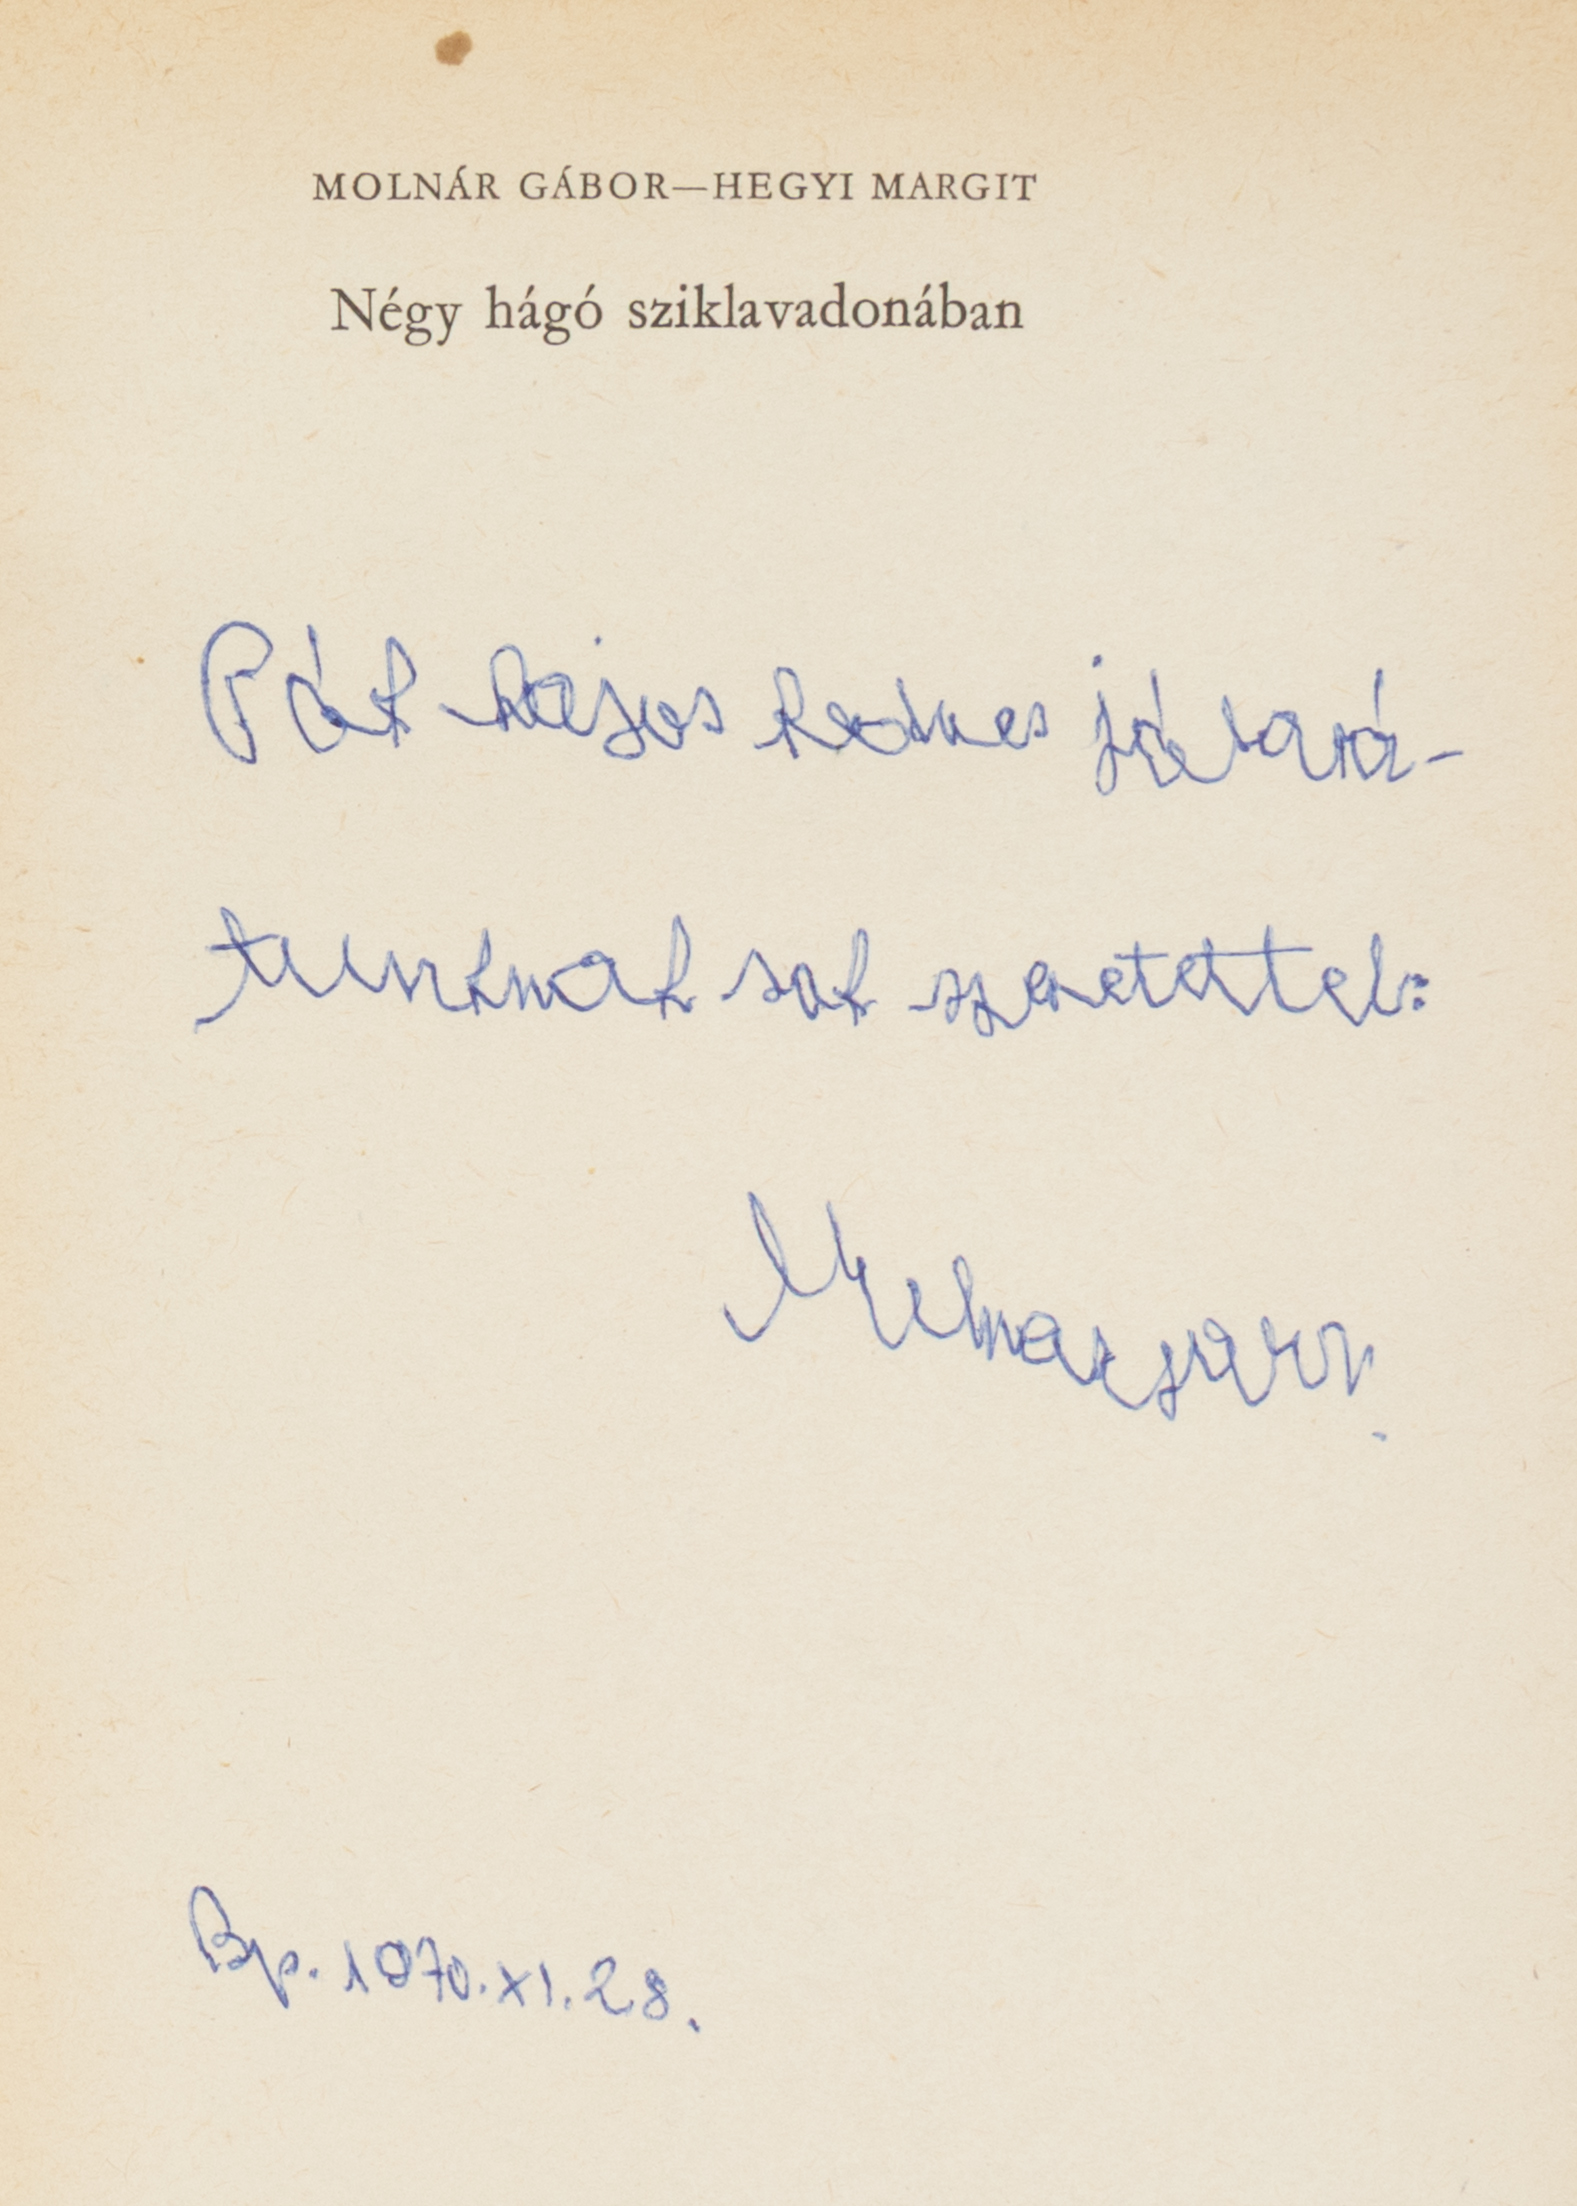 MOLNÁR GÁBOR—HEGYI MARGIT
Négy hágó sziklavadonában
Pák Lajos kedves jóbará-
tunknak sok szeretettel:
Molnár Gábor
Bp. 1970. XI. 28.